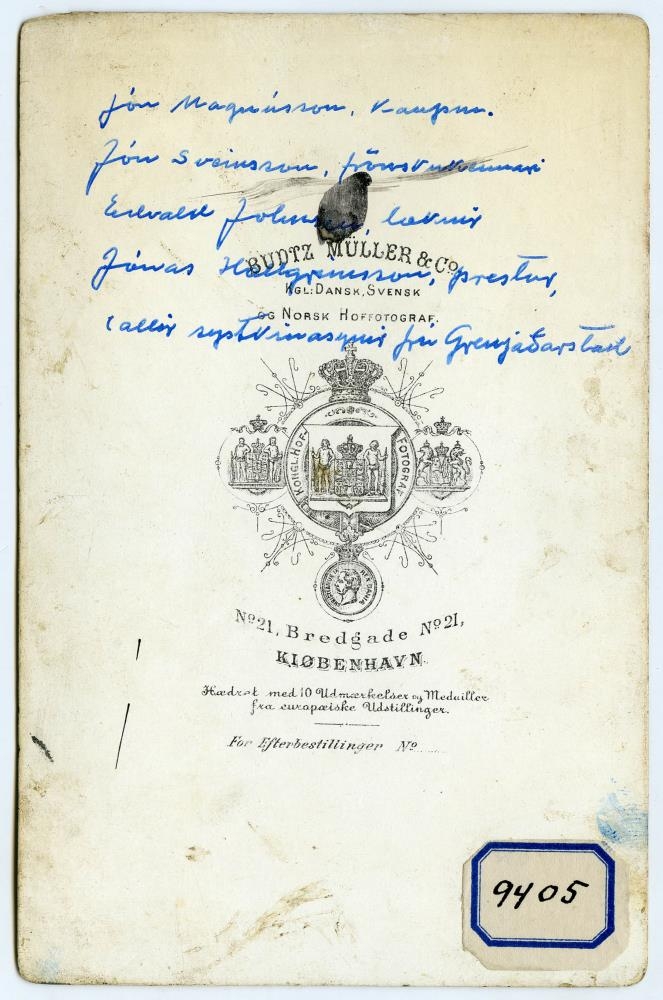 Jón Magnússon, kaupm.
Jón Sveinsson, fónskukennari
Edvald Johnsen, læknir
Jónas Hallgrímsson, prestur,
(allir systkinasynir frá Grenjaðarstað
BUDTZ MÜLLER & Co.
KGL: DANSK, SVENSK
OG NORSK HOFFOTOGRAF.
KONGL. HOF FOTOGRAF
REX DANIÆ
No 21, Bredgade No 21,
KIØBENHAVN.
Hædret med 10 Udmærkelser og Medailler
fra europæiske Udstillinger.
For Efterbestillinger No
9405